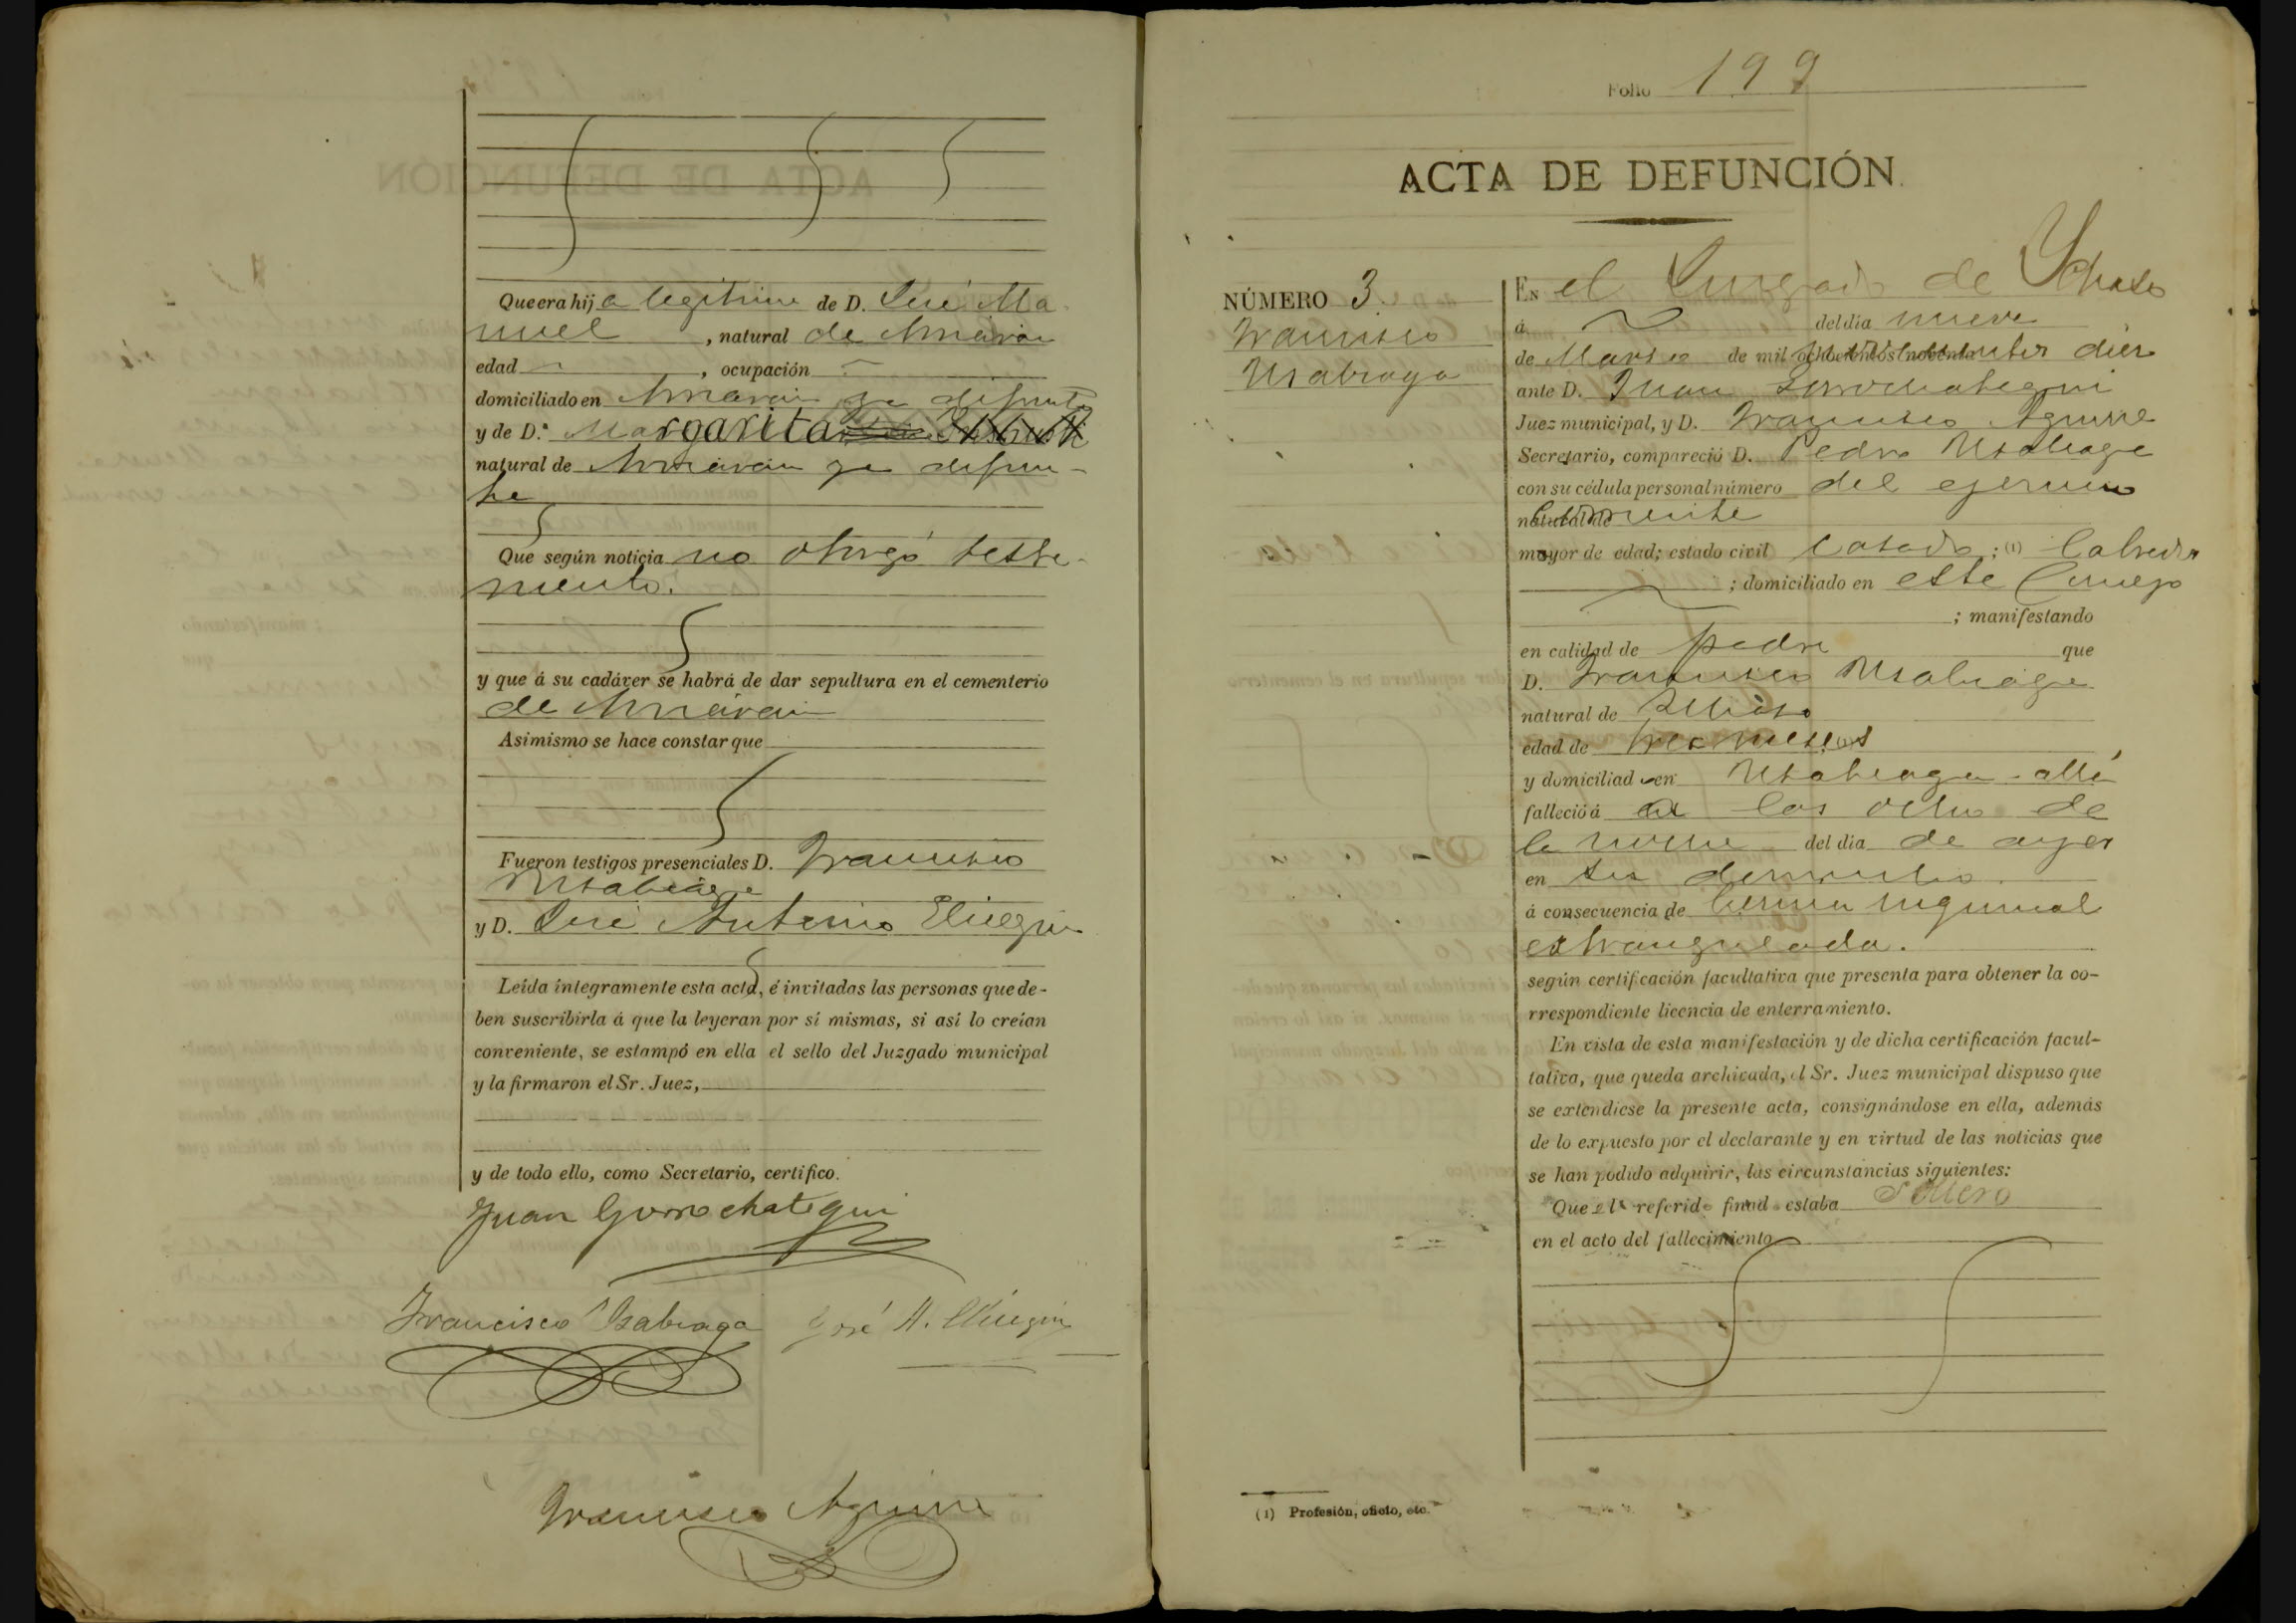 Que era hija legitima de D. José Ma
nuel, natural de Arnáran
edad, ocupación
domiciliado en Arnáran ya difunto
y de D.ª Margarita
natural de Arnáran ya difun-
ta
Que según noticia no otorgó testa-
mento.
y que á su cadáver se habrá de dar sepultura en el cementerio
de Arnáran
Asimismo se hace constar que
Fueron testigos presenciales D. Francisco
Usabiaga
y D. José Antonio Elicegui
Leída íntegramente esta acta, é invitadas las personas que de-
ben suscribirla á que la leyeran por sí mismas, si así lo creían
conveniente, se estampó en ella el sello del Juzgado municipal
y la firmaron el Sr. Juez,
y de todo ello, como Secretario, certifico.
Juan Gorrochategui
Francisco Usabiaga José A. Elicegui
Francisco Aguirre
Folio 199
ACTA DE DEFUNCIÓN.
NÚMERO 3.
Francisco
Usabiaga
En el Juzgado de Ichaso
á del dia nueve
de Marzo de mil ochocientos noventa diez
ante D. Juan Gorrochategui
Juez municipal, y D. Francisco Aguirre
Secretario, compareció D. Pedro Usabiaga
con su cédula personal número del ejercicio
natural de corriente
mayor de edad; estado civil casado; (1) labrador
; domiciliado en este Concejo
; manifestando
en calidad de padre que
D. Francisco Usabiaga
natural de Ichaso
edad de tres meses
y domiciliado en Usabiaga - allí
falleció á a las ocho de
la noche del dia de ayer
en su domicilio.
á consecuencia de hernia inguinal
estrangulada.
según certificación facultativa que presenta para obtener la co-
rrespondiente licencia de enterramiento.
En vista de esta manifestación y de dicha certificación facul-
tativa, que queda archivada, el Sr. Juez municipal dispuso que
se extendiese la presente acta, consignándose en ella, además
de lo expuesto por el declarante y en virtud de las noticias que
se han podido adquirir, las circunstancias siguientes:
Que el referido finado estaba Soltero
en el acto del fallecimiento
(1) Profesión, oficio, etc.